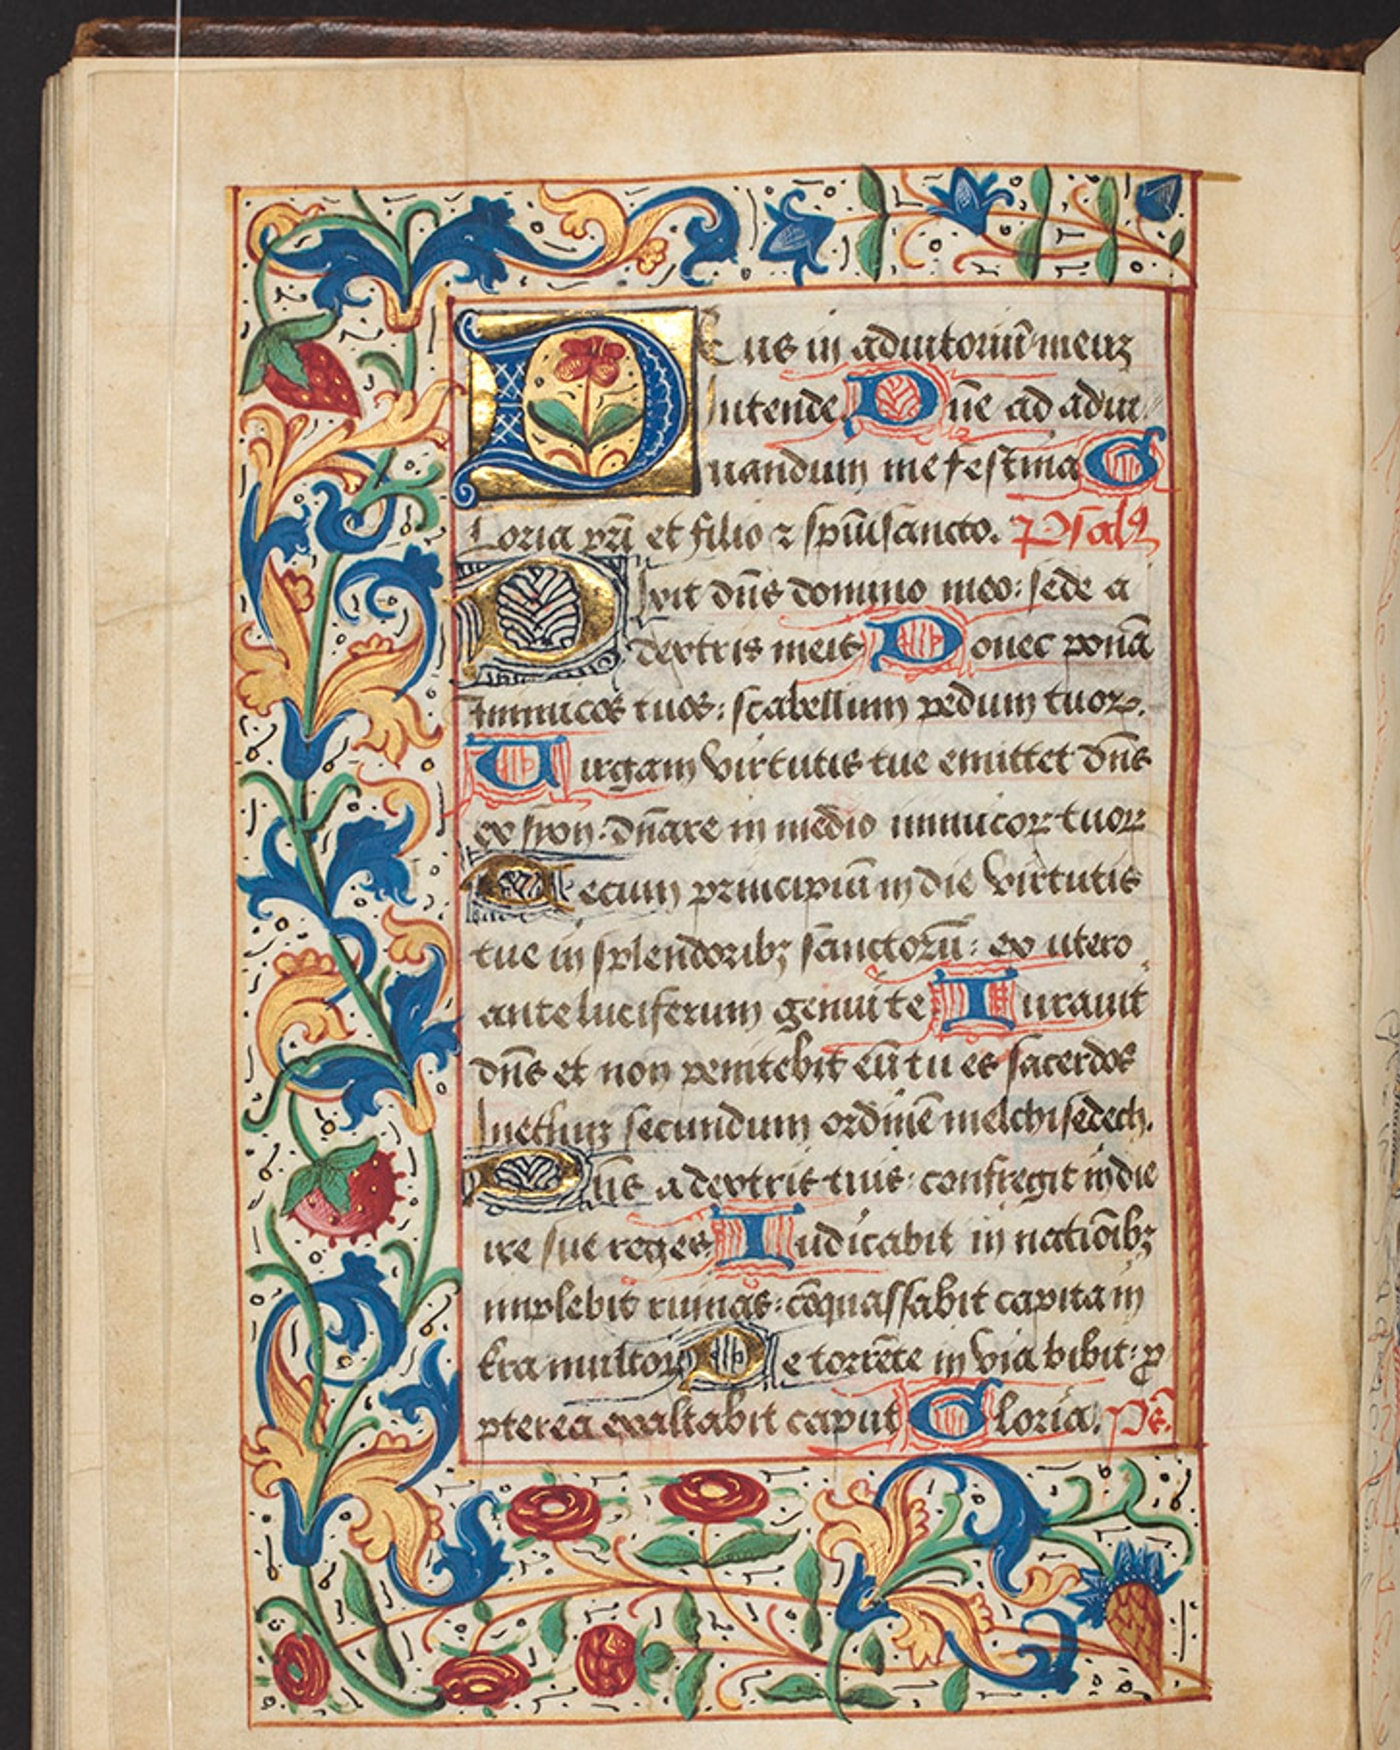 Deus in adiutoriū meuʒ
Intende Dn̄e ad adiu
uandum me festina G
Loria pr̄i et filio ⁊ sp̄uisancto. Psalꝯ
Dixit dn̄s domino meo: sede a
dextris meis Donec ponā
inimicos tuos: scabellum pedum tuoꝝ.
Uirgam virtutis tue emittet dn̄s
ex syon: dn̄are in medio inimicoꝝ tuoꝝ
Tecum principiū in die virtutis
tue in splendoribꝫ sanctorū: ex utero
ante luciferum genui te Iurauit
dn̄s et non penitebit eū tu es sacerdos
Ineternuʒ secundum ordinē melchisedech.
Dn̄s a dextris tuis: confregit in die
ire sue reges Iudicabit in natiōibꝫ
implebit ruinas: cōquassabit capita in
tr̄a multoꝝ De torrēte in via bibit: ꝓ
pterea exaltabit caput Gloria. Ps̄.